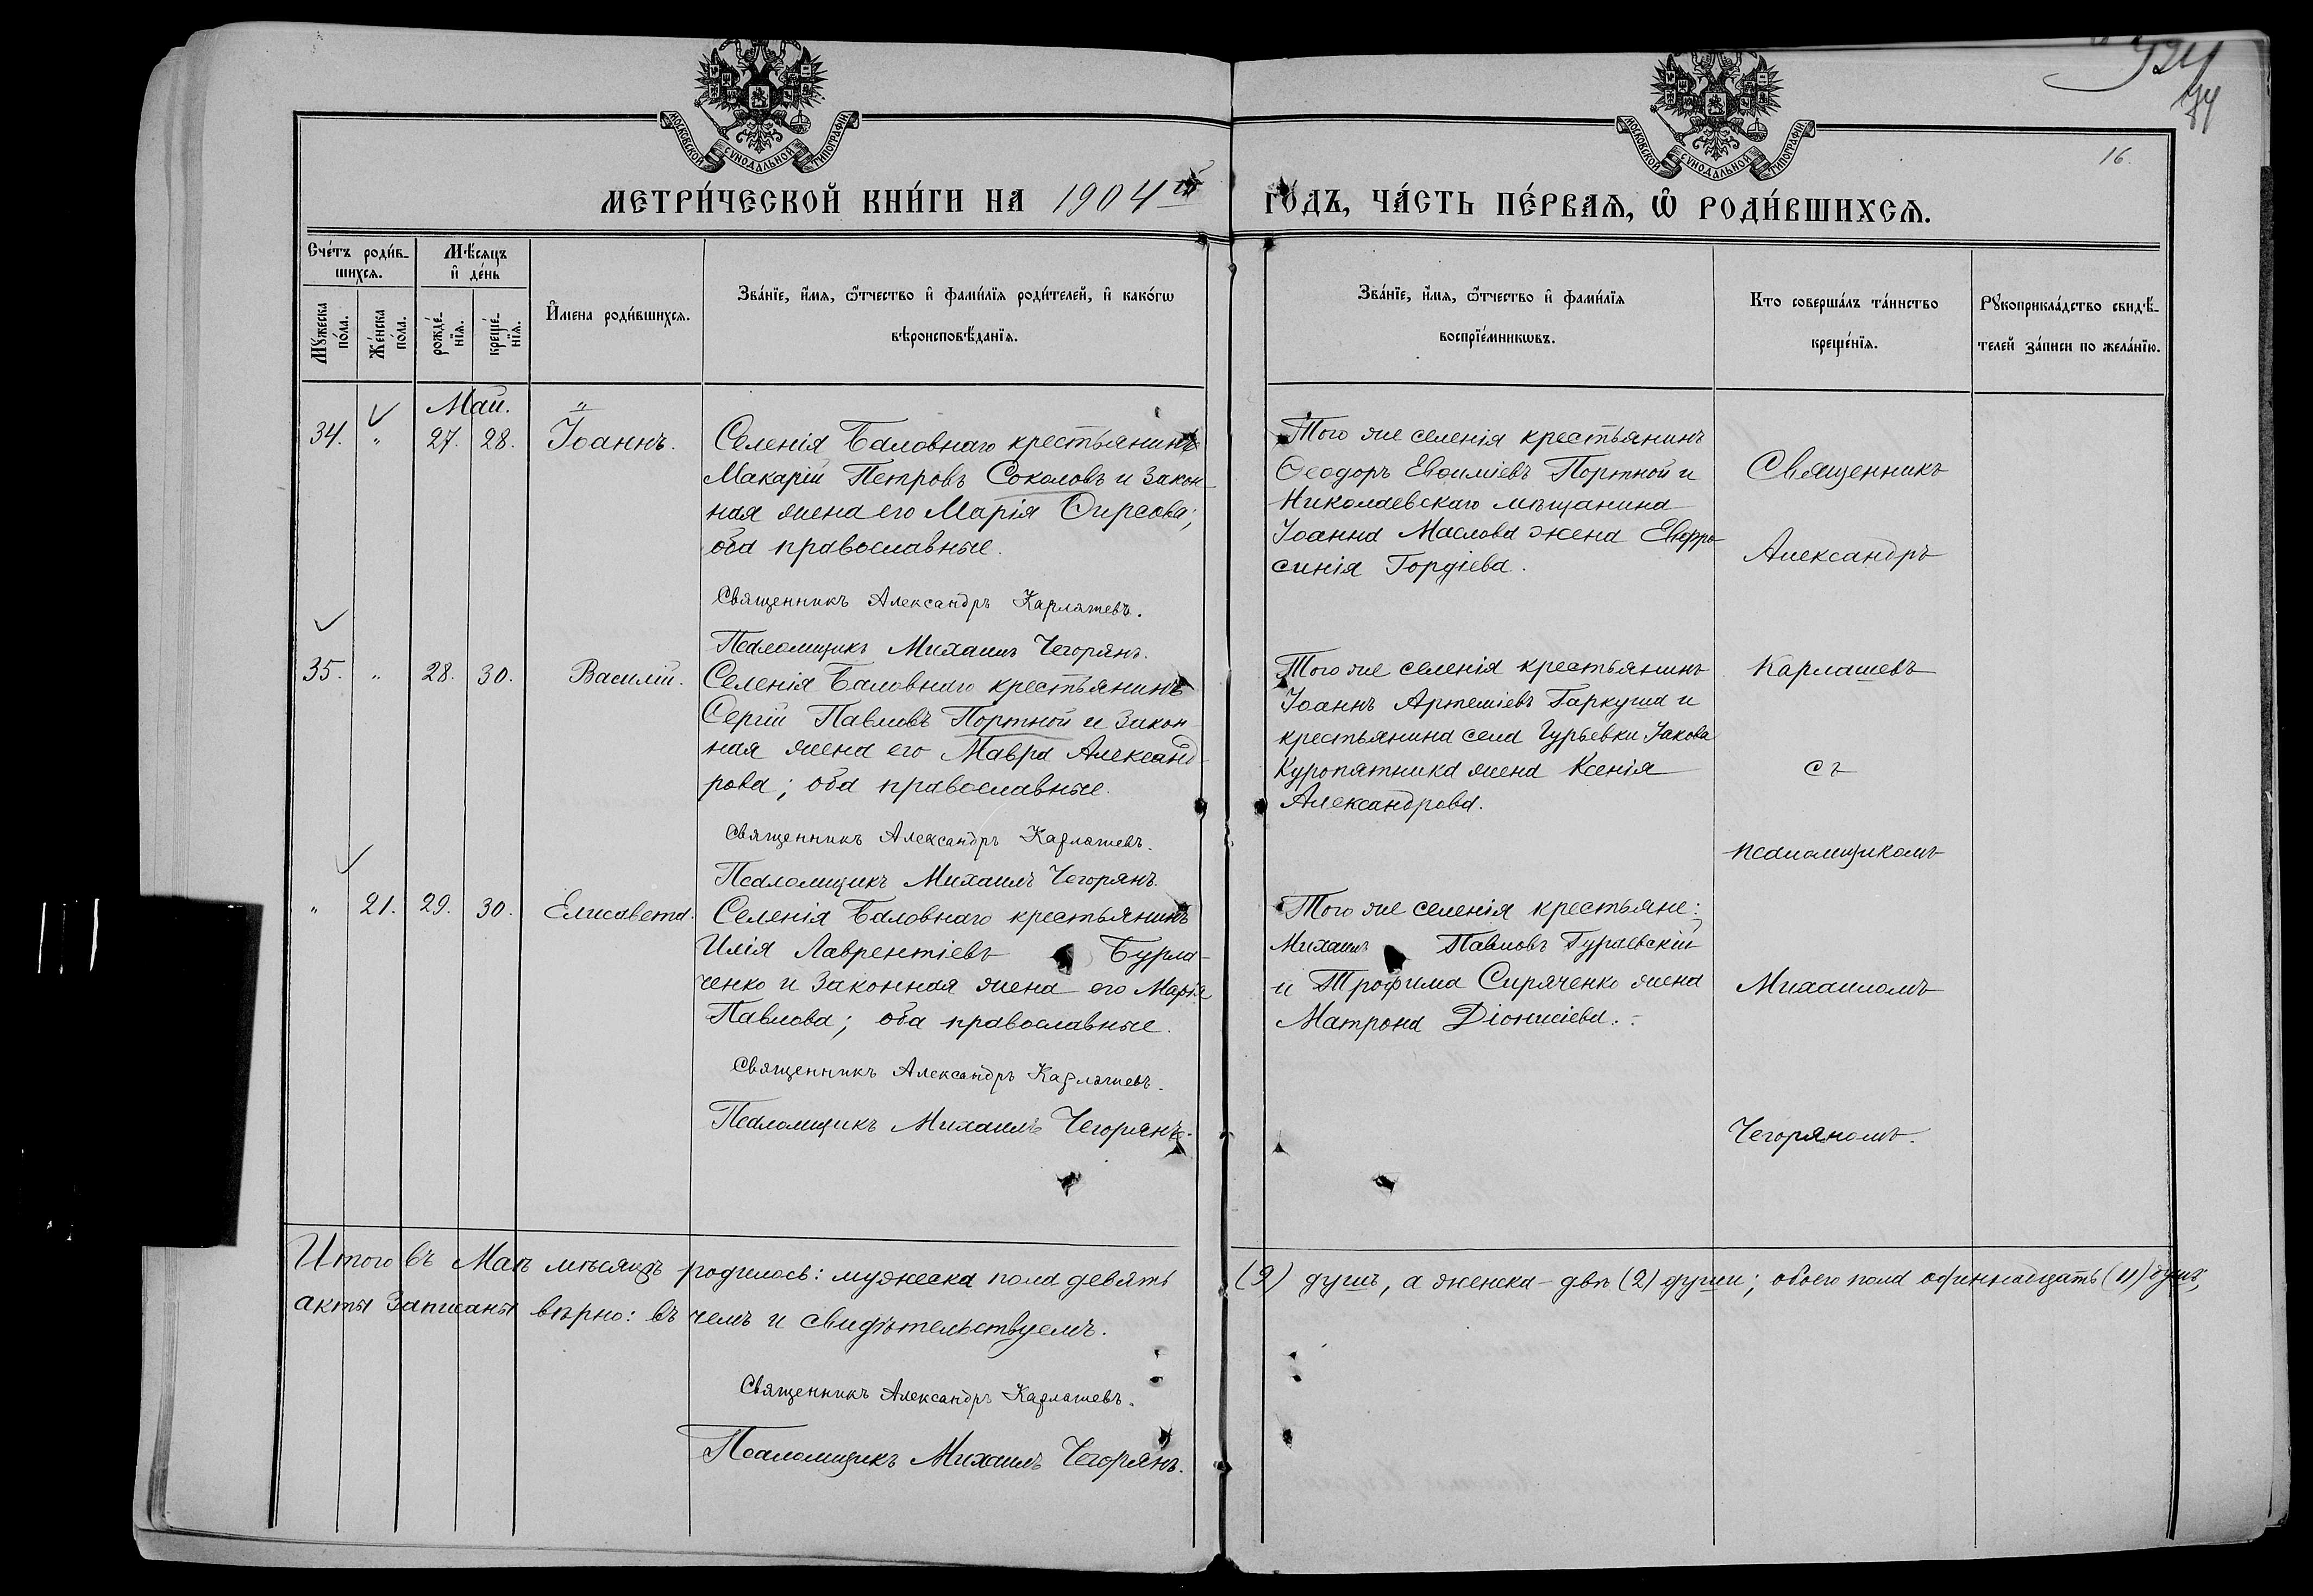 МОСКОВСКОЙ СѴНОДАЛЬНОЙ ТИПОГРАФІИ
МОСКОВСКОЙ СѴНОДАЛЬНОЙ ТИПОГРАФІИ
16.
МЕТРИ́ЧЕСКОЙ КНИ́ГИ НА 1904
ГО́ДЪ, ЧА́СТЬ ПЕ́РВАѦ, Ѡ РОДИ́ВШИХСѦ.
Сче́тъ роди́в-
шихсѧ.
Мѣ́сѧцъ
и҆ де́нь
Мꙋ́жеска
по́ла.
Же́нска
по́ла.
рожде́-
нїѧ.
креще́-
нїѧ.
И҆мена роди́вшихсѧ.
Зва́нїе, и҆́мѧ, ѻ҆́тчество и҆ фами́лїѧ роди́телей, и҆ како́гѡ
вѣроисповѣ́данїѧ.
Зва́нїе, и҆́мѧ, ѻ҆́тчество и҆ фами́лїѧ
воспрїе́мникѡвъ.
Кто соверша́лъ та́инство
креще́нїѧ.
Рꙋкоприкла́дство свидѣ́-
телей за́писи по жела́нїю.
Май.
34. " 27. 28. Іоаннъ.
Селенія Баловнаго крестьянинъ
Макарій Петровъ Соколовъ и закон-
ная жена его Марія Ѳирсова;
оба православные.
Священникъ Александръ Карлашевъ.
Псаломщикъ Михаилъ Чегорянъ.
Того же селенія крестьянинъ
Ѳеодоръ Евѳиміевъ Портной и
Николаевскаго мѣщанина
Іоанна Маслова жена Евфро-
синія Гордіева.
Священникъ
Александръ
35. " 28. 30. Василій.
Селенія Баловнаго крестьянинъ
Сергій Павловъ Портной и закон-
ная жена его Мавра Александ-
рова; оба православные.
Священникъ Александръ Карлашевъ.
Псаломщикъ Михаилъ Чегорянъ.
Того же селенія крестьянинъ
Іоаннъ Артеміевъ Гаркуша и
крестьянина села Гурьевки Іакова
Куропятника жена Ксенія
Александрова.
Карлашевъ
съ
псаломщикомъ
" 21. 29. 30. Елисавета.
Селенія Баловнаго крестьянинъ
Илія Лаврентіевъ Бурла-
ченко и законная жена его Марія
Павлова; оба православные.
Священникъ Александръ Карлашевъ.
Псаломщикъ Михаилъ Чегорянъ.
Того же селенія крестьяне:
Михаилъ Павловъ
и Трофима Сиряченко жена
Матрона Діонисіева.
Михаиломъ
Чегоряномъ.
Итого въ Маѣ мѣсяцѣ родилось: мужеска пола девять (9) душъ, а женска - двѣ (2) души; обоего пола одиннадцать (11) душъ,
акты записаны вѣрно: въ чемъ и свидѣтельствуемъ.
Священникъ Александръ Карлашевъ.
Псаломщикъ Михаилъ Чегорянъ.